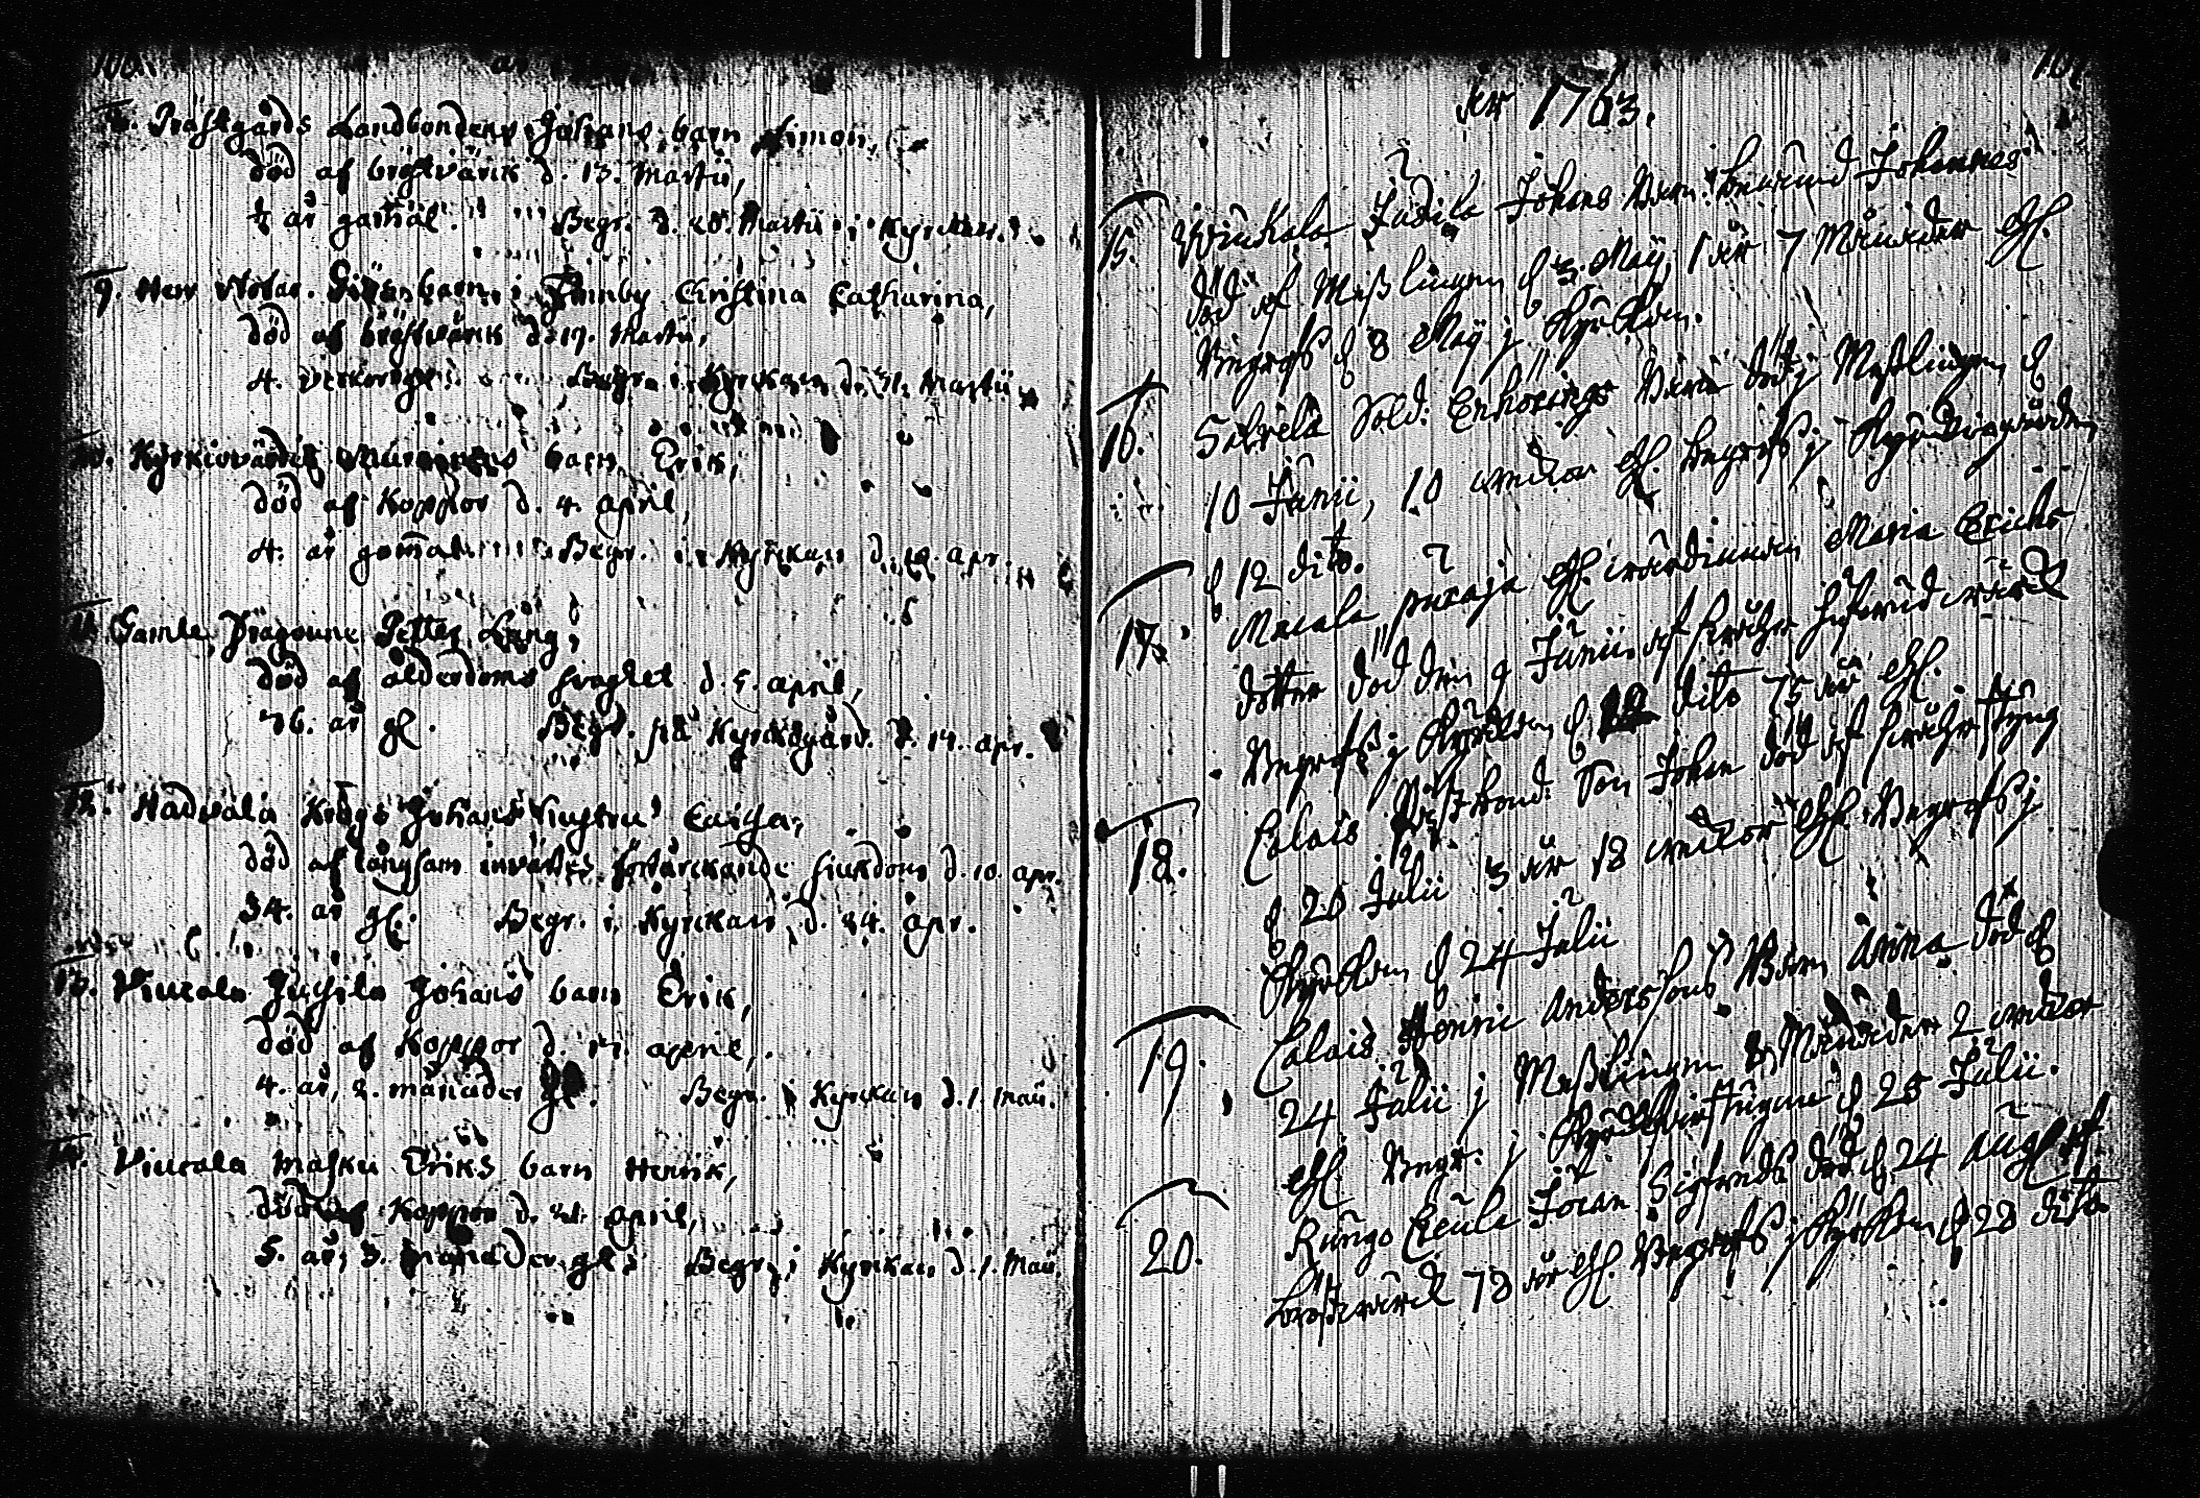 100.
8. Prästgårds Landbondens Johans barn Simon,
död af bröstvärk d. 13. Martii,
½ år gammal. Begr. d. 20. Martii i Kyrckan.
9. Herr barn i Finnby Christina Catharina,
död af bröstvärk d. 17. Martii,
4. veckor gl. i Kyrckan d. 31. Martii
10. Kyrkiovärdens barn Erik,
död af Koppor d. 4. april,
4. år gammal Begr. i Kyrckan d. 10. apr.
11. Gamle Dragoune Petter Lång,
död af ålderdoms svaghet d. 5. april,
76. år gl. Begr. på Kyrckogård. d. 14. apr.
12. Hadvala Krögs Johans hustru Caisa,
död af långsam invärtes förtärckande siukdom d. 10. apr.
34. år gl. Begr. i Kyrckan d. 24. apr.
13. Viucala Jussila Johans barn Erik,
död af Koppor d. april,
4. år, 2. månader gl. Begr. i Kyrckan d. 1. Maii.
14. Viucala Masku Eriks barn Henrik,
död af Koppor d. april,
5. år, 3. månader gl. Begr. i Kyrckan d. 1. Maii.
101
År 1763.
15. Wiukala Jusila Johans Barn Johannes
död af Messlingen d 3 Maij, 1 år 7 Månader gl.
Begrofs d 8 Maij j Kyrckan.
16. Salvela Sold: Enhörings Barn död j Messlingen d
10 Junii, 10 weckor gl. begrofs j Kyrckiogården
d 12 dito.
17. Macala puraja gl. wärdinnan Maria Erichs
dotter död den 9 Junii af hufwudwärck
Begrofs j Kyrckan d 12 dito 75 år gl.
18. Calais Son Johan död af styng
d 20 Julii 3 år 18 weckor gl. Begrofs j
Kyrckan d 24 Julii
19. Calais Henric Anderssons Barn Anna död d
24 Julii j Messlingen Månader 2 weckor
gl. Begr. j d 25 Julii.
20. Rungo Eeula Jöran Sigfreds död d 24 Aug. af
bröstwärck 78 år gl. Begrofs j Kyrckan d 28 dito